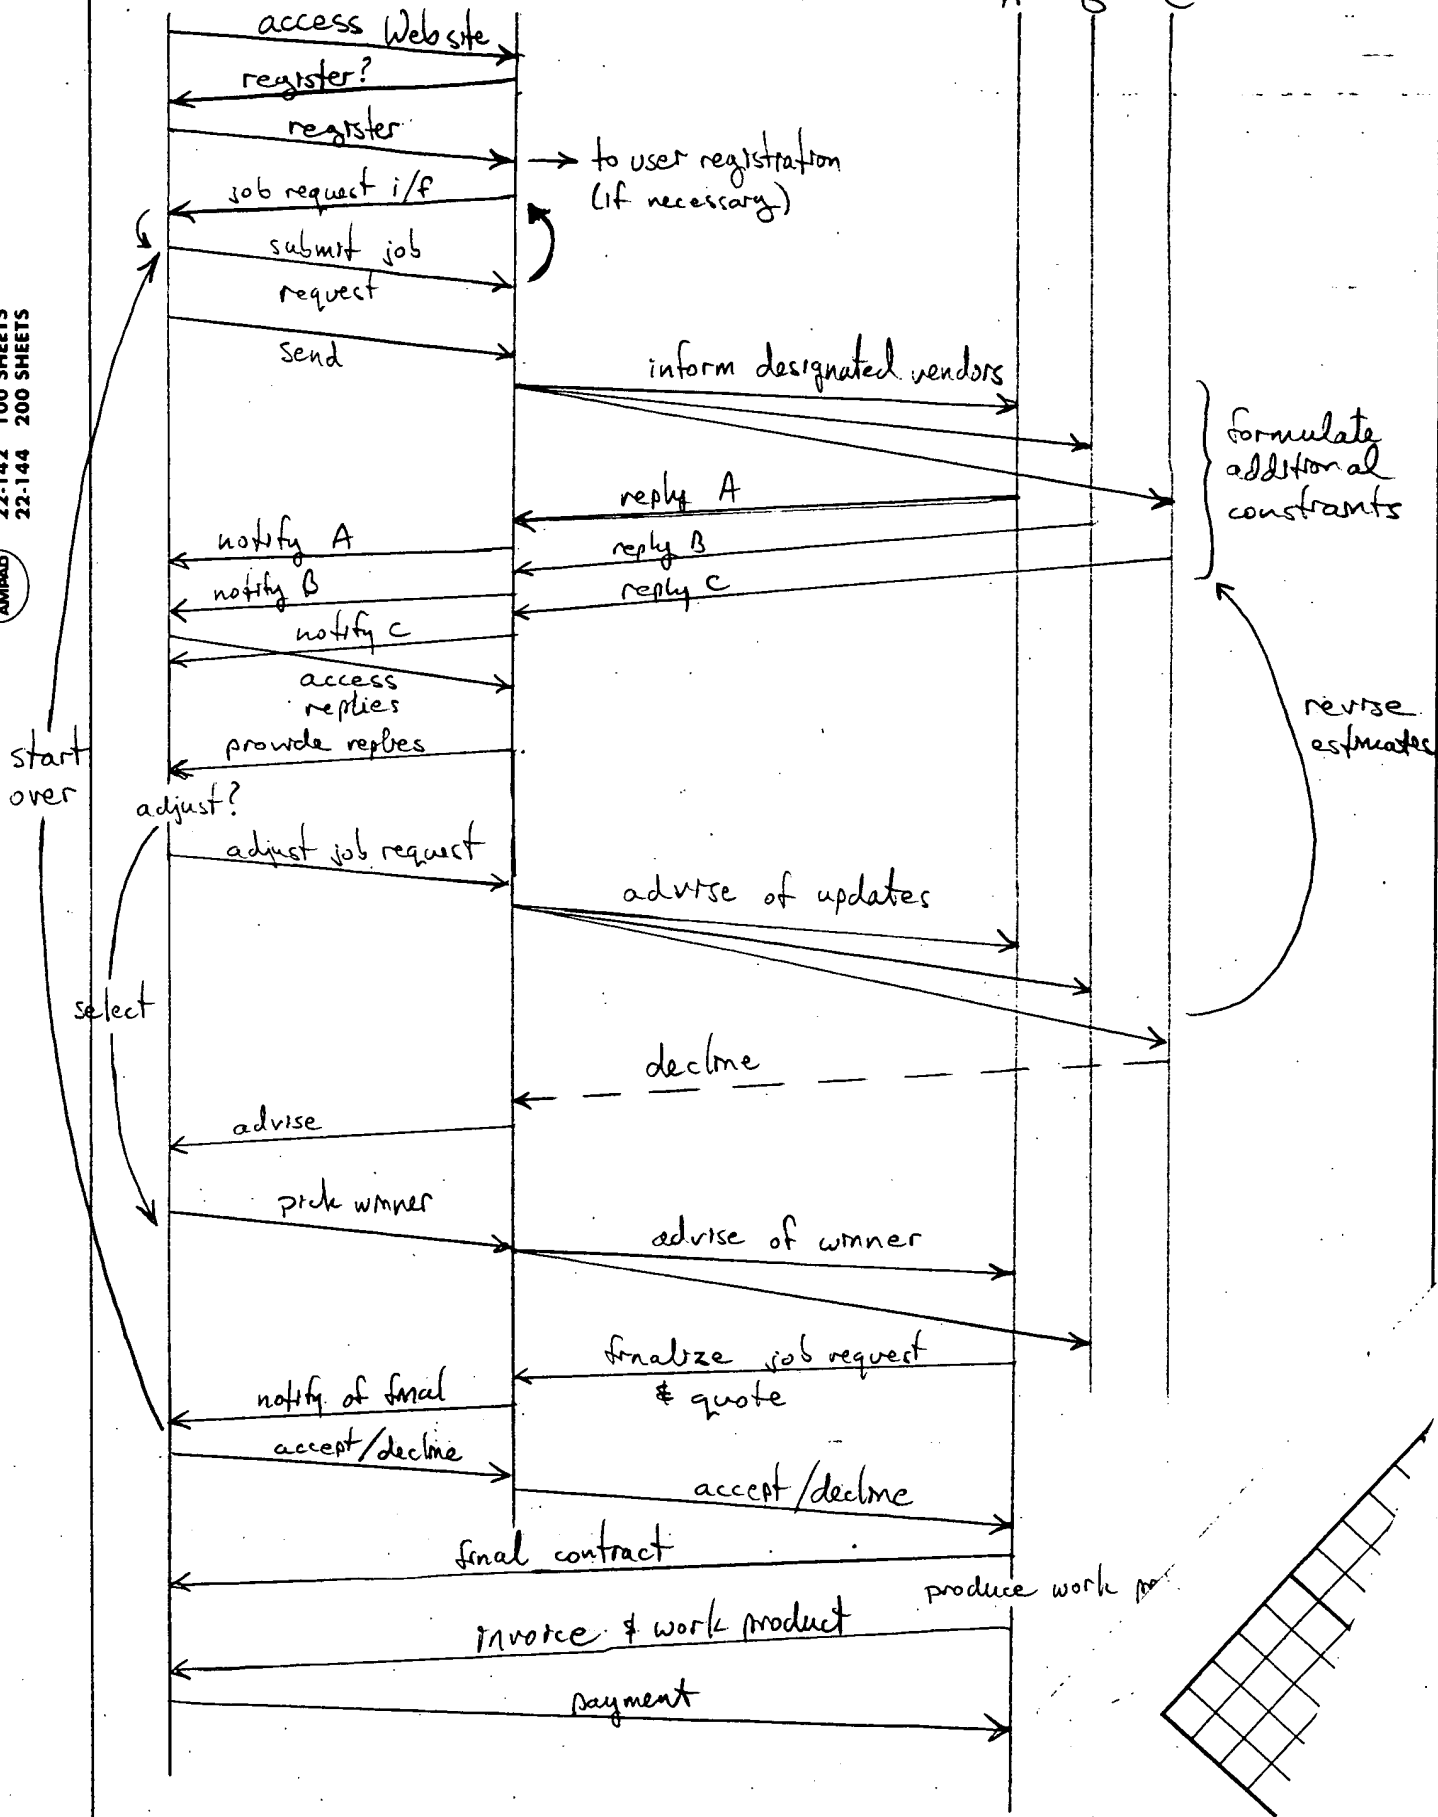 A B C
access Website
register?
register
to user registration
(if necessary)
job request i/f
submit job
request
send
inform designated vendors
formulate
additional
constraints
reply A
notify A
reply B
notify B
reply C
notify C
access
replies
provide replies
revise
estimates
start
over
adjust?
adjust job request
advise of updates
select
decline
advise
pick winner
advise of winner
finalize job request
& quote
notify of final
accept/decline
accept/decline
final contract
produce work
invoice & work product
payment
22-142 100 SHEETS
22-144 200 SHEETS
AMPAD